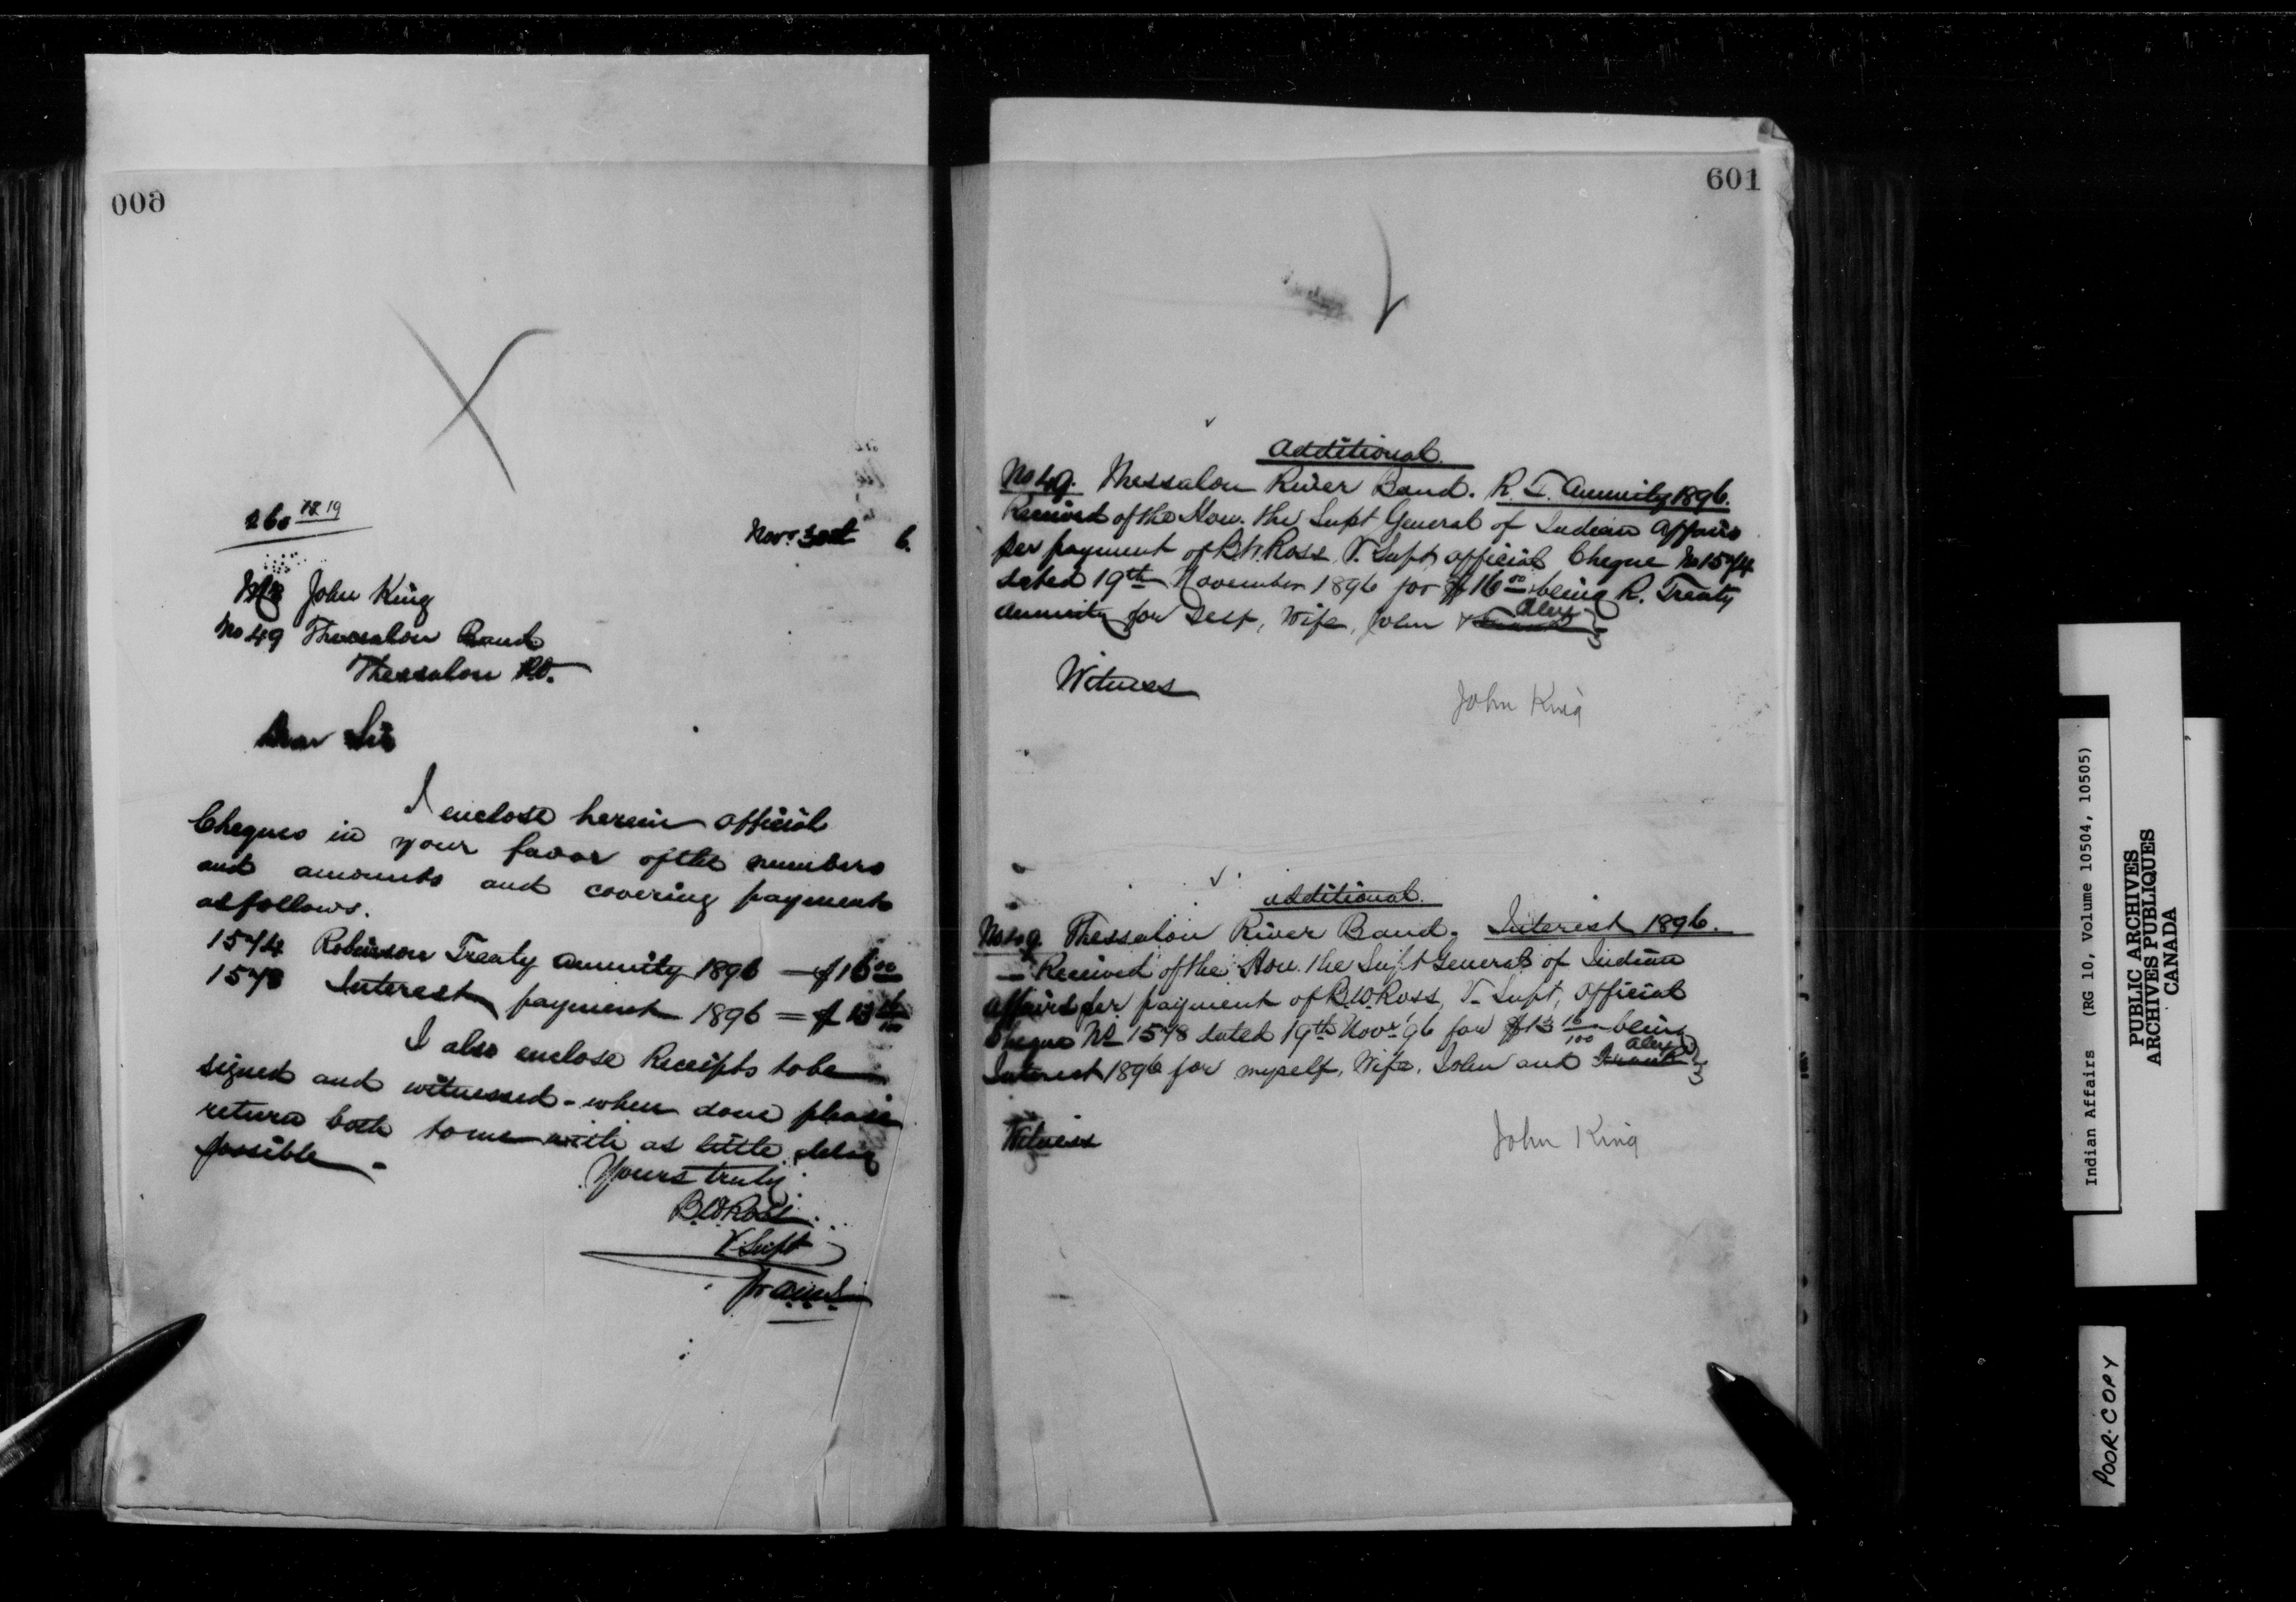 600
260 18 19
Novr 30th 6.
Mr John King
No 49 Thessalon Band
Thessalon P.O.
Dear Sir
I enclose herein official
Cheques in your favor of the numbers
and amounts and covering payments
as follows.
1574 Robinson Treaty Annuity 1896 — $16 00
1578 Interest payment 1896 = $13 16/100
I also enclose Receipts to be
signed and witnessed - when done please
return both to me with as little delay
possible -
Yours truly
B.W. Ross
V. Supt
601
Additional.
No 49. Thessalon River Band. R. T. Annuity 1896.
Received of the Hon. the Supt General of Indian Affairs
per payment of B.W. Ross, V. Supt, official Cheque No 1574
dated 19th November 1896 for $16 00 being R. Treaty
Alex
Annuity for Self, Wife, John &
Witness
John King
Additional.
No 49. Thessalon River Band. Interest 1896.
— Received of the Hon. the Supt General of Indian
Affairs per payment of B.W. Ross, V. Supt, Official
Cheque No 1578 dated 19th Novr '96 for $13 16/100 being
Alex
Interest 1896 for myself, Wife, John and Frank
Witness
John King
Indian Affairs (RG 10, Volume 10504, 10505)
PUBLIC ARCHIVES
ARCHIVES PUBLIQUES
CANADA
POOR·COPY